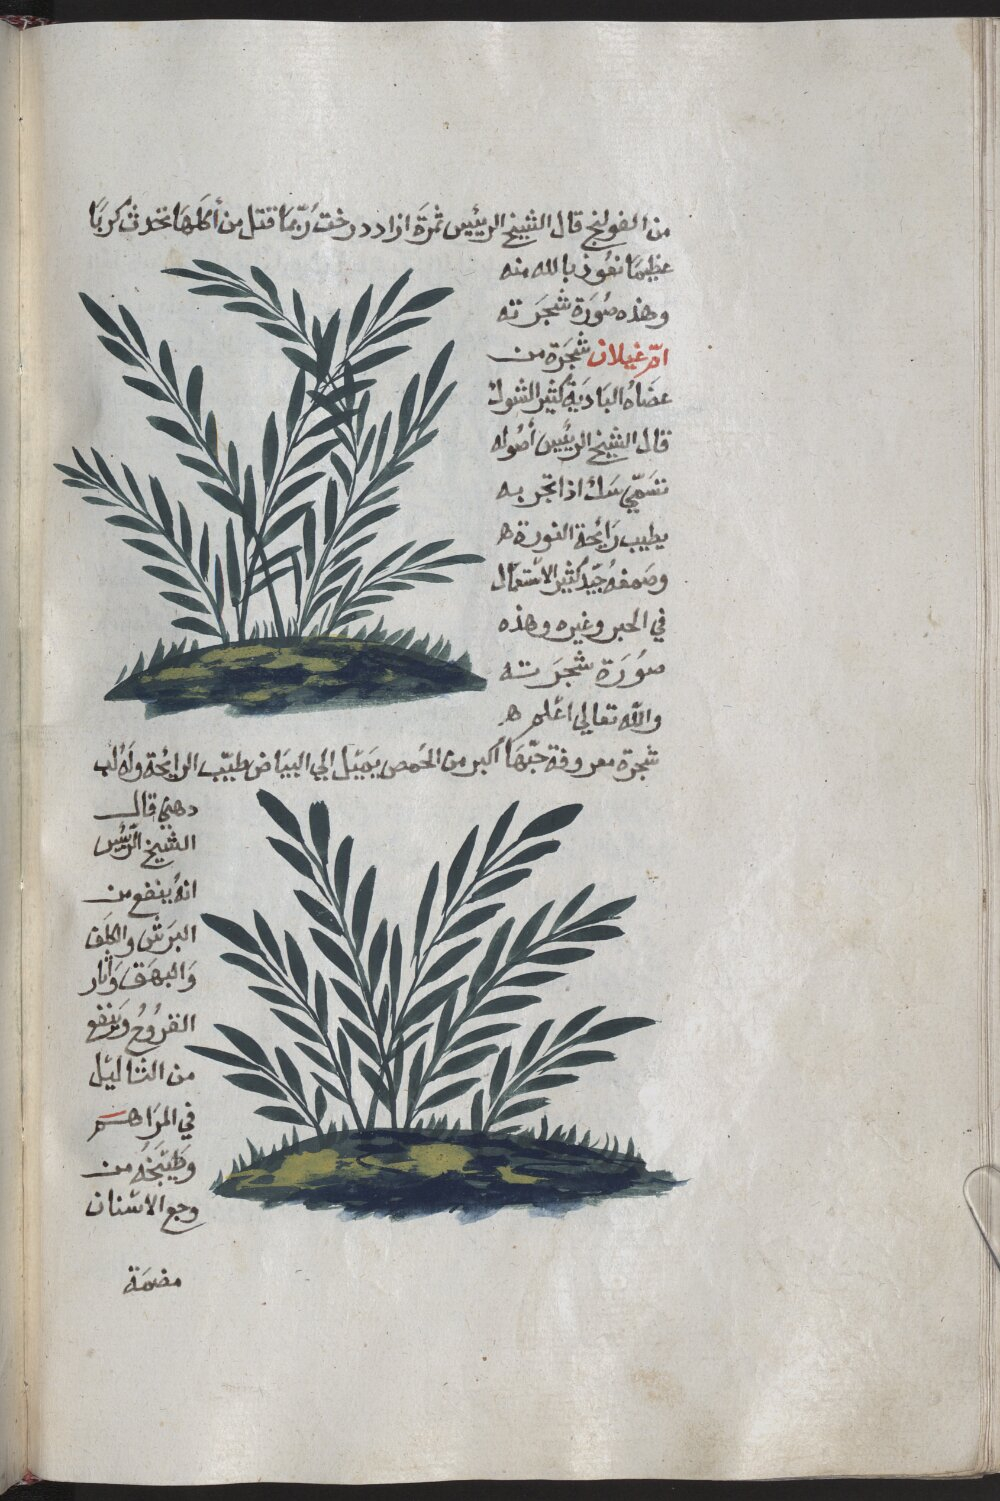 من القولنج قال الشيخ الرئيس ثمرة ازاد درخت رُبّما قتل من أكلها تحدث كربًا
عظيمًا نعُوذ بالله منه
وهذه صُورَة شجَرَته
امّ غيلان شجَرَة من
عضَاه البَاديَة كثير الشوك
قال الشيخ الرئيس أصُوله
تسَمّي سك اذا تجر به
يطيب رَائحة النورة ه
وصمغهُ جيّد كثير الاستعمال
في الحبر وغيره وهذه
صُورَة شجَرَته
والله تعالي اعلم ه
شجرة معروفة حبّهَا أكبر من الحمص يَميل الي البيَاض طيّب الرايحة وَلهُ لب
دهني قال
الشيخ الرّئيس
انهُ ينفع من
البرَش والكلَف
وَالبهَق وَأثار
القرُوحُ وَينفع
من الثاليل
في المرَاهم
وَطَبيخُه من
وجع الاسْنان
مضمَة